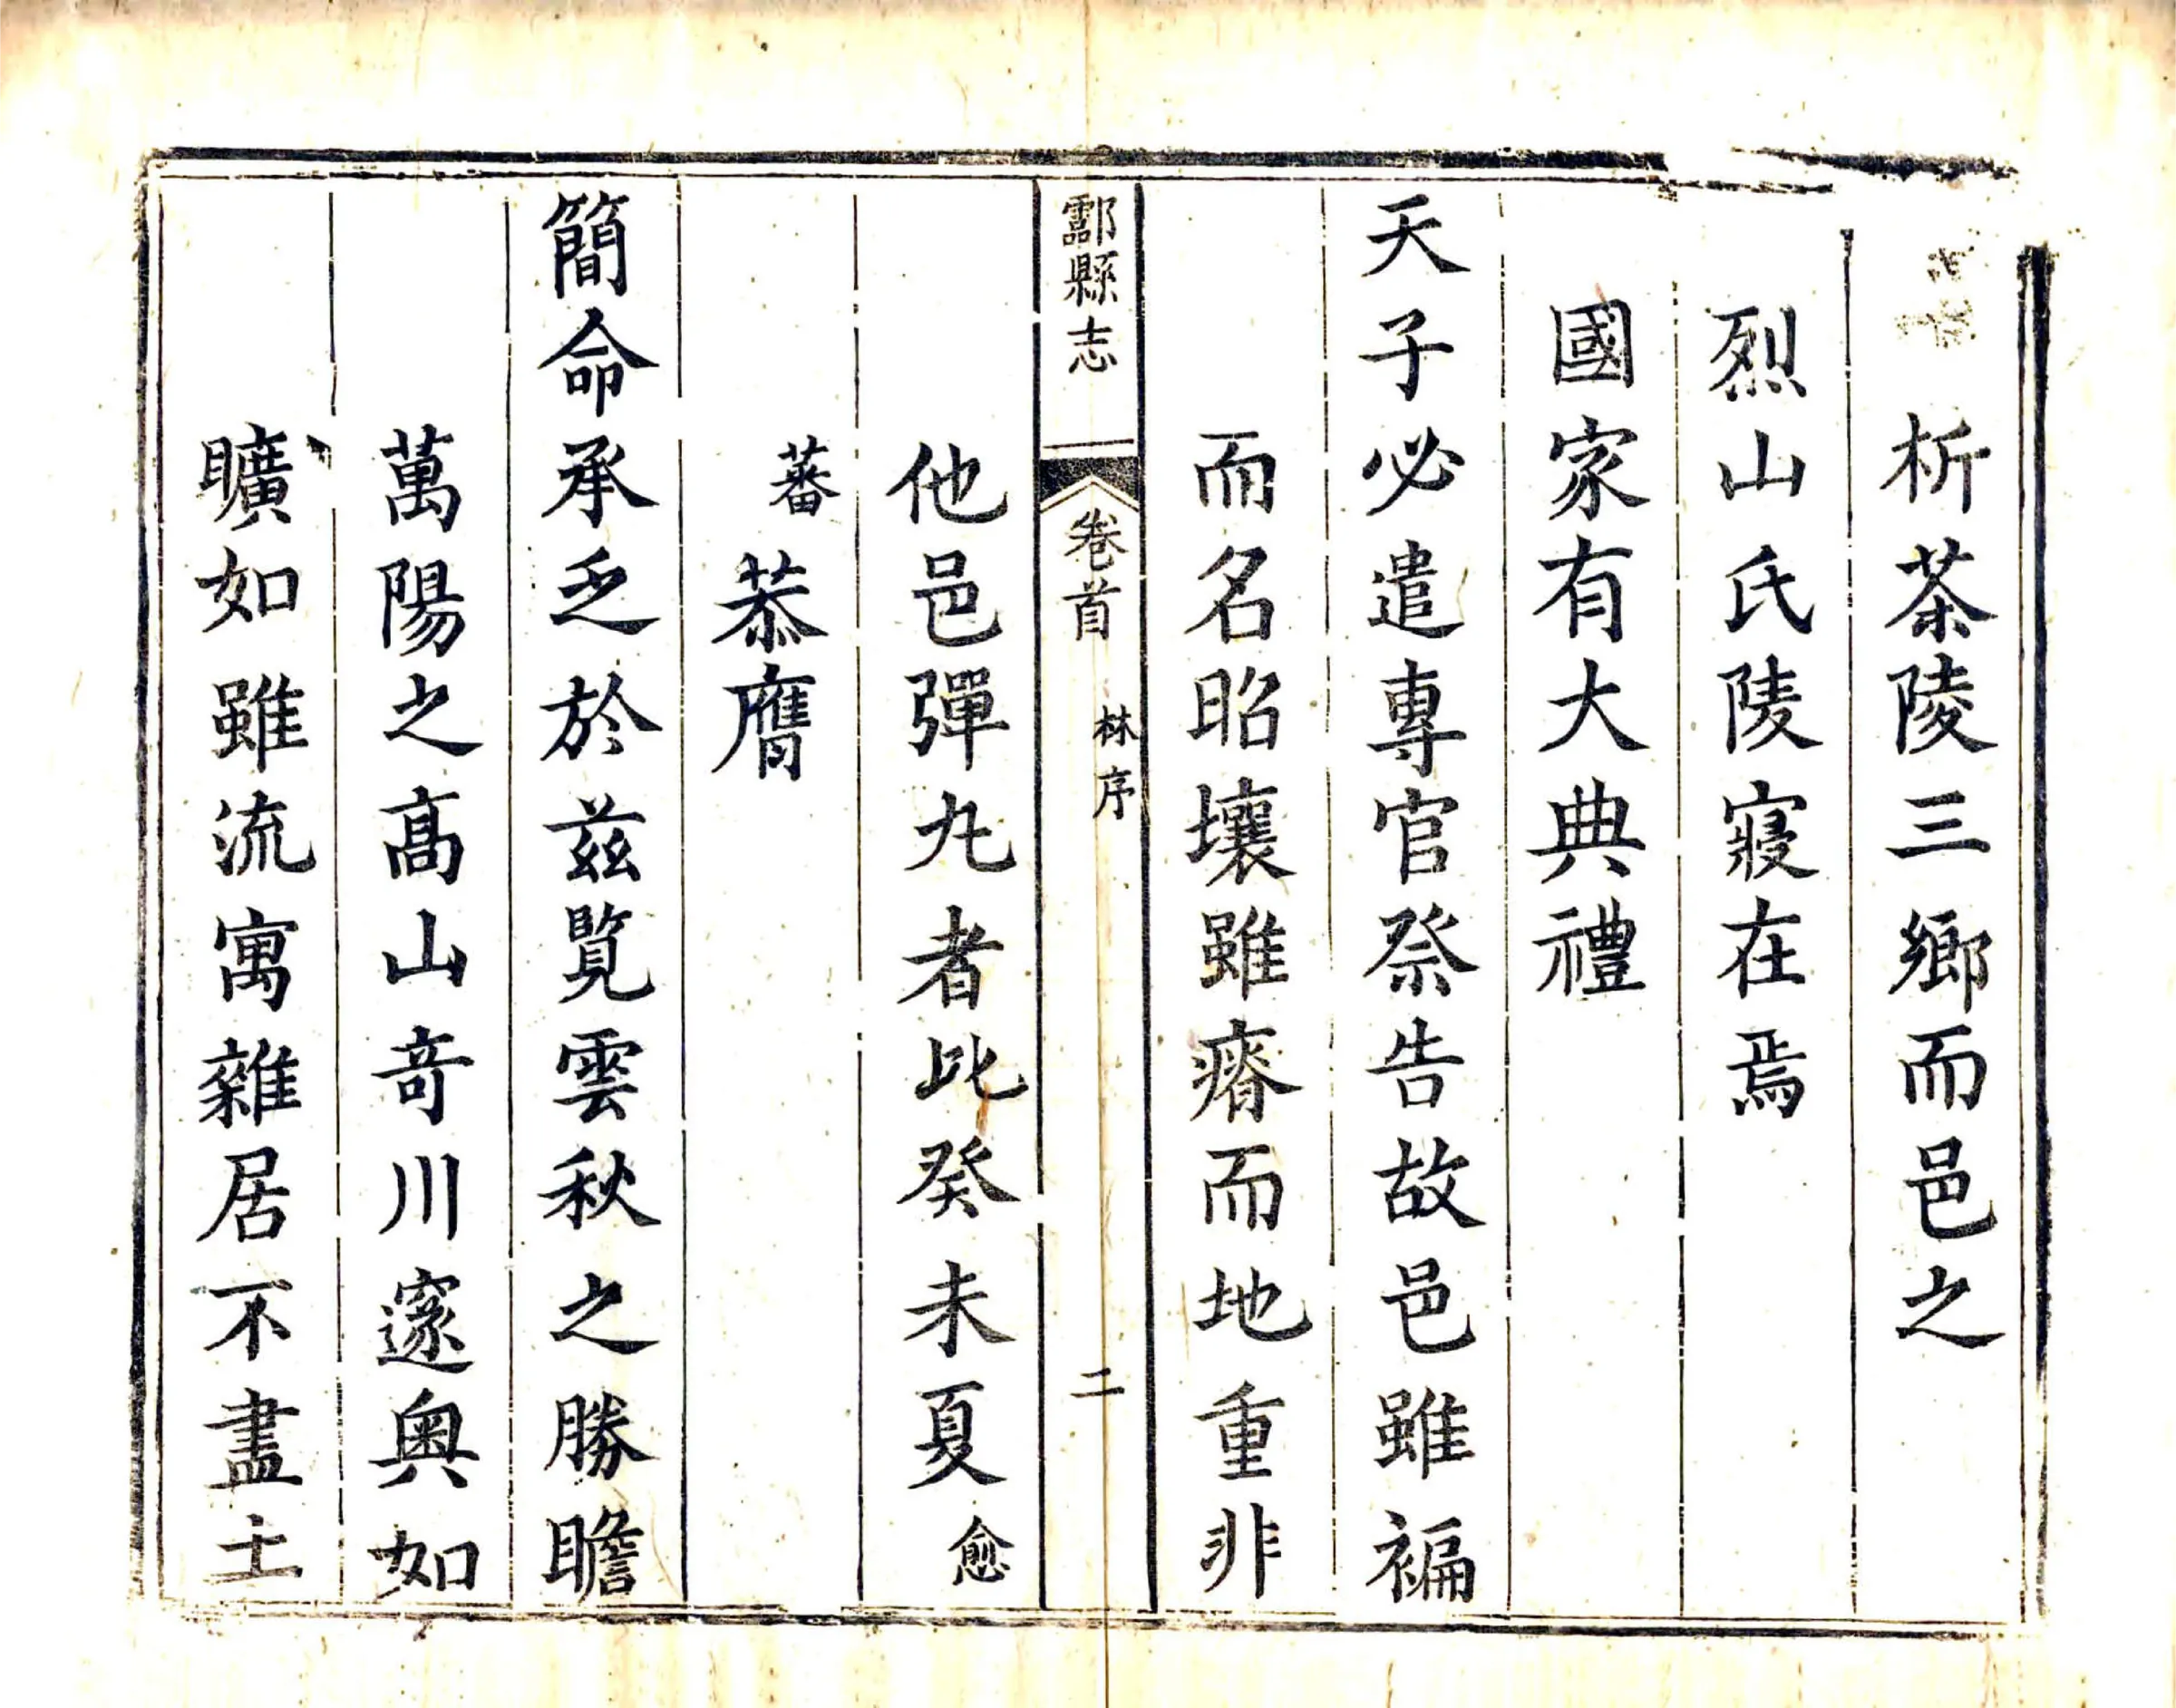 析茶陵三鄉而邑之
烈山氏陵寢在焉
國家有大典禮
天子必遣專官祭告故邑雖褊
而名昭壤雖瘠而地重非
酃縣志
卷首
林序
二
他邑彈丸者比癸未夏愈
蕃恭膺
簡命承乏於兹覧雲秋之勝瞻
萬陽之髙山竒川邃奥如
曠如雖流寓雜居不盡土